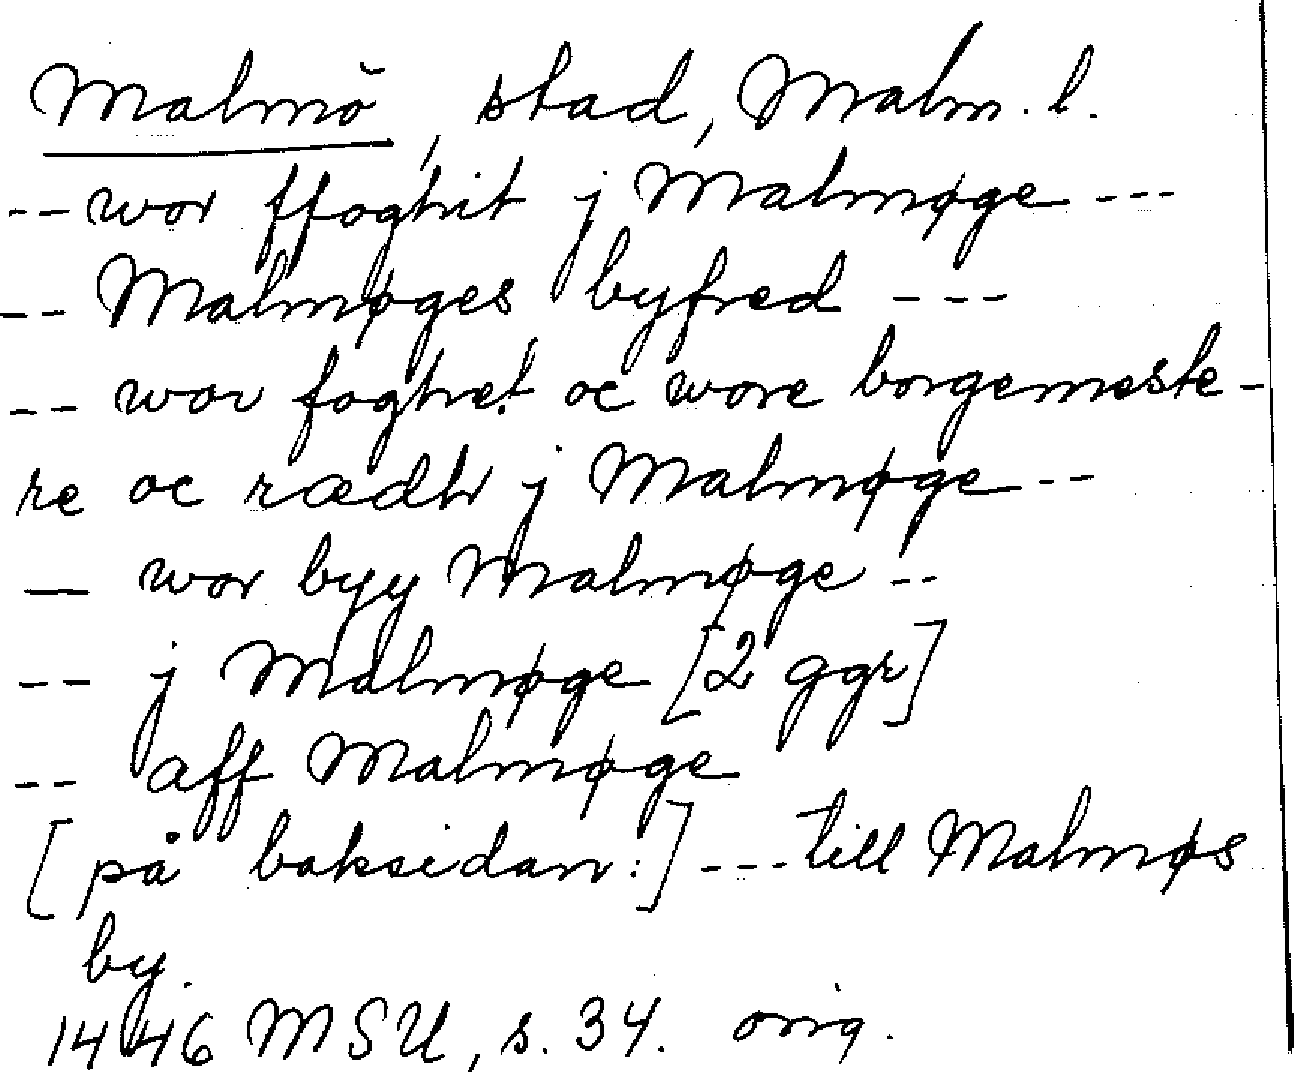 Malmö, stad, Malm. l.
-- wor ffoghit j Malmøge ---
-- Malmøges byfred ---
-- wor foghet oc wore borgemeste-
re oc rædh j Malmøge --
— wor byy Malmøge --
-- j Malmøge [2 ggr]
-- aff Malmøge
[på baksidan:] --- till Malmøs
by.
1446 MSU, s. 34. orig.